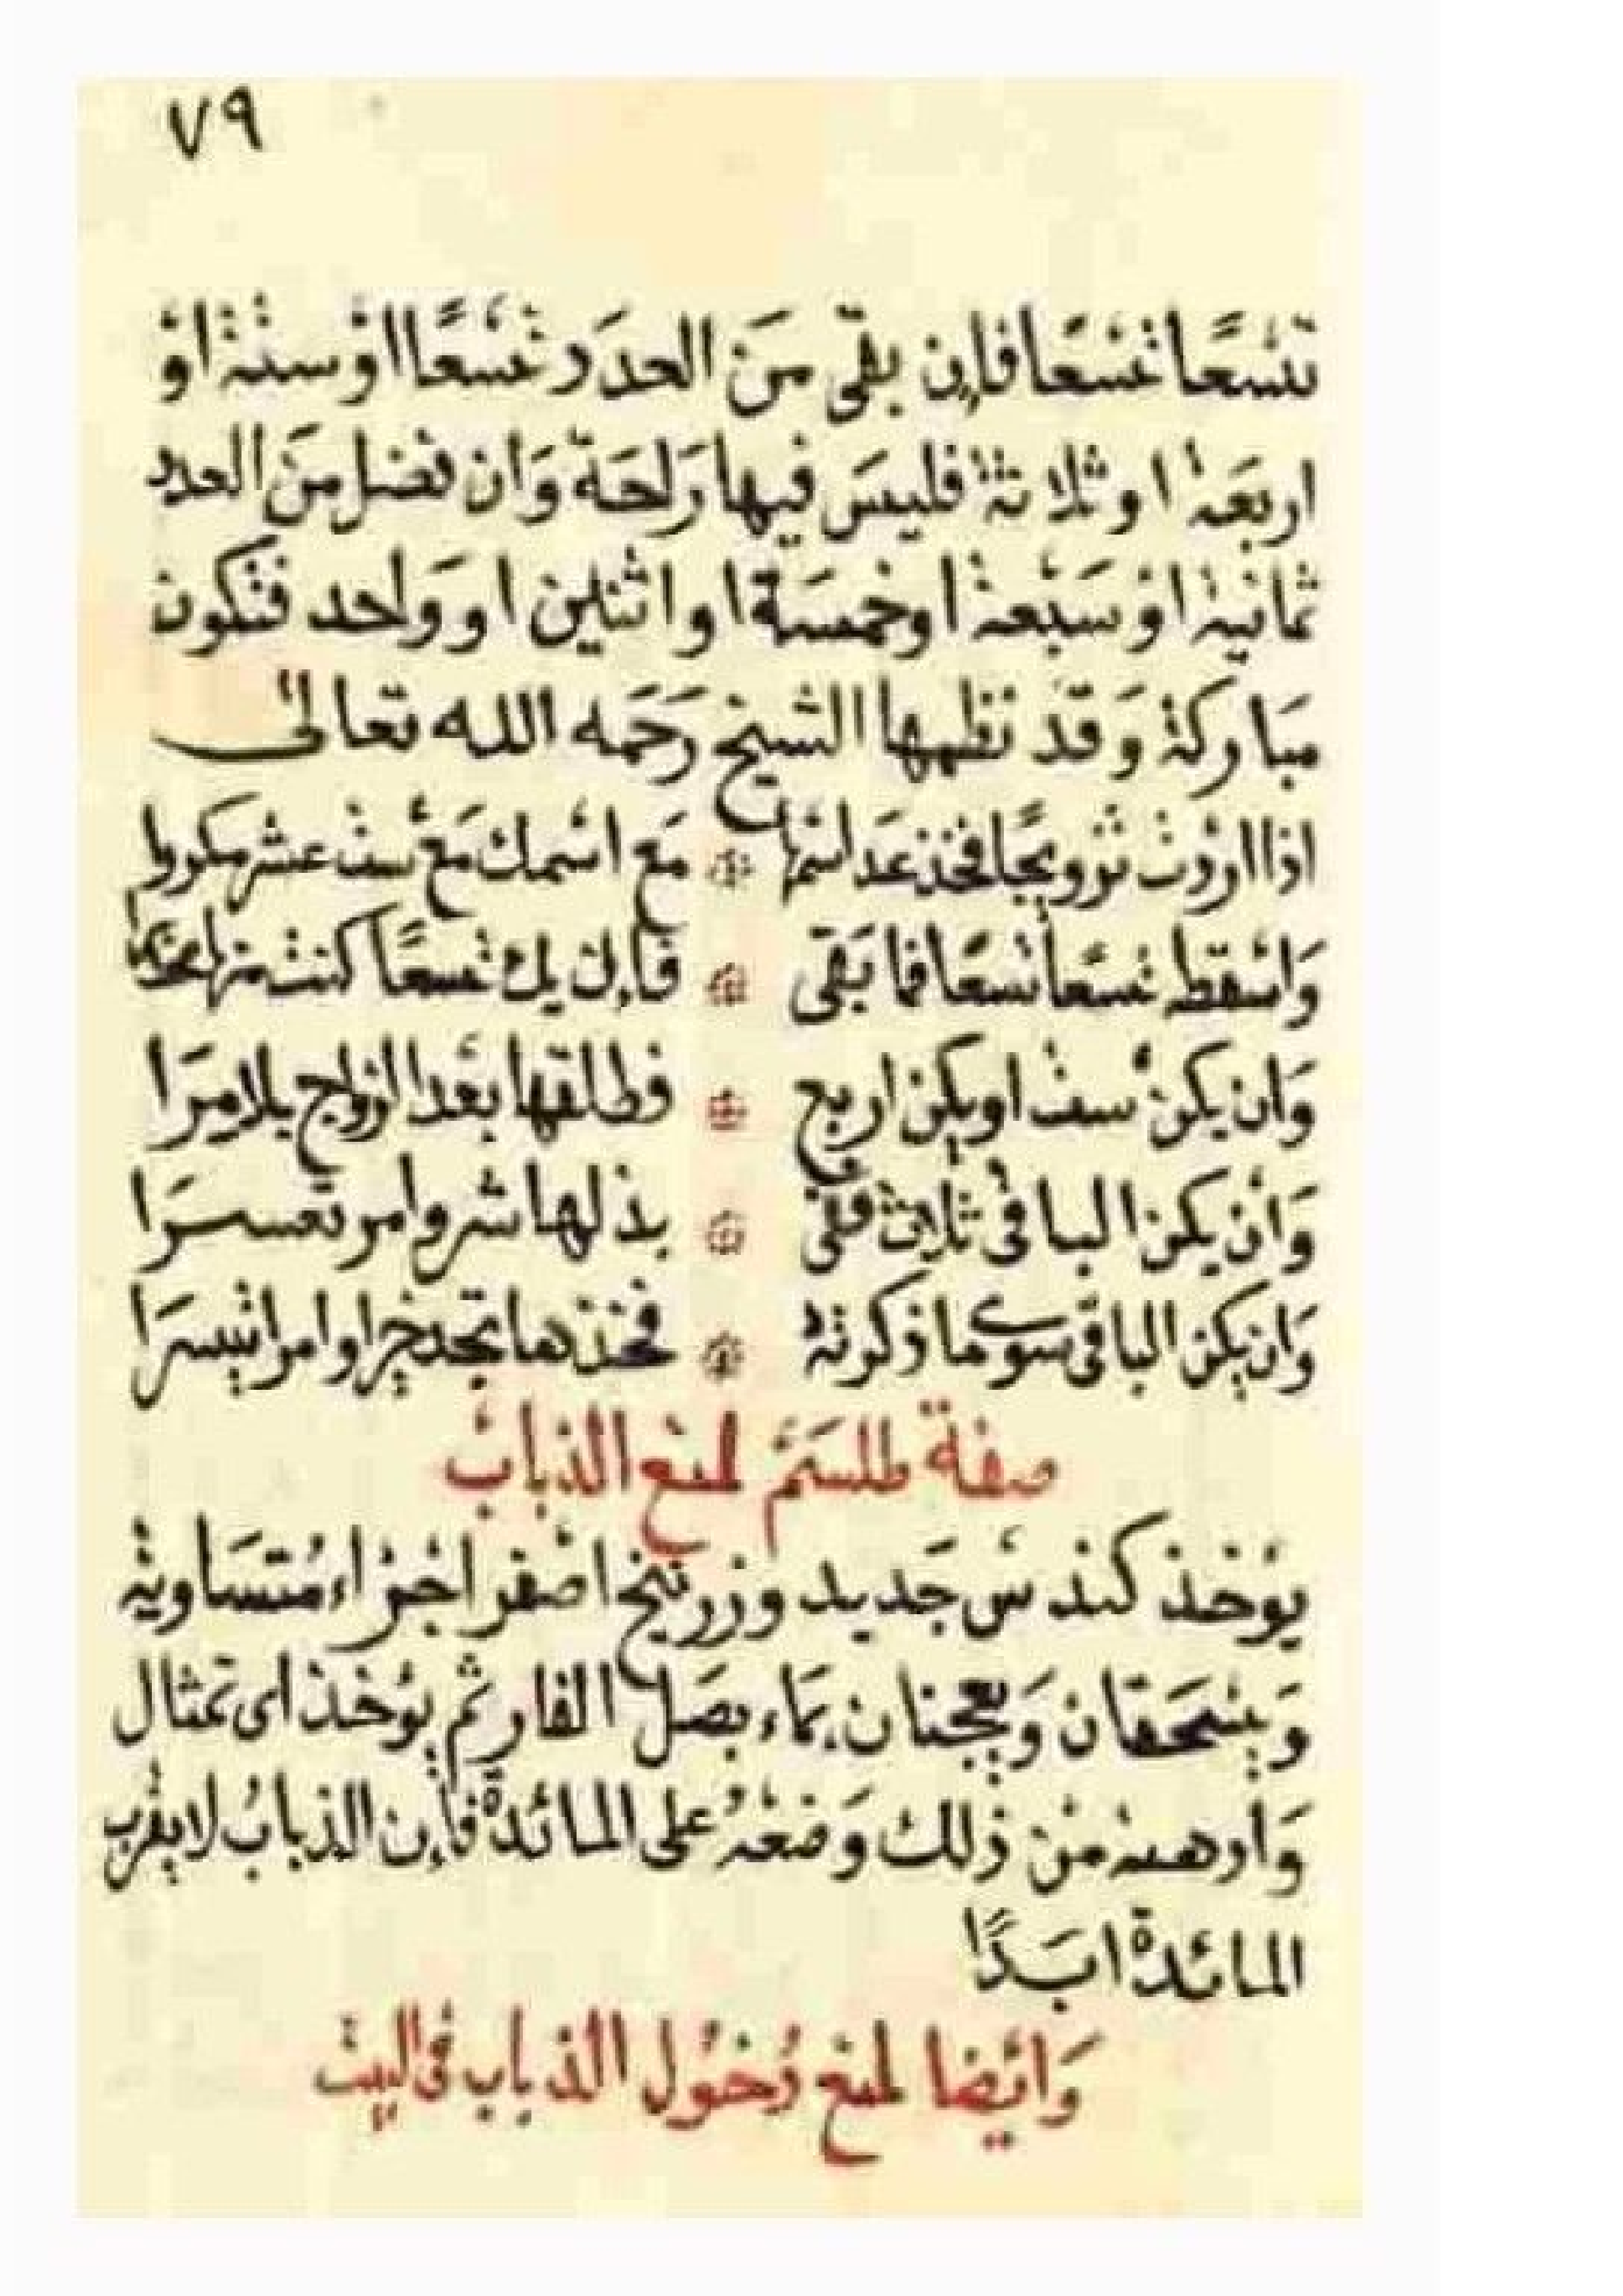 ٧٩
تسعًا تسعًا فإن بقى مَن العدَد تسعًا اوْ ستة اوْ
اربَعة ا و ثلاثة فليسَ فيها رَاحَة وَان فضل منَ العدد
ثمانية اوْ سَبعة ا وخمسَة ا و اثنين ا و وَاحد فتكون
مبَاركة وَقد نظمها الشيخ رَحمَه الله تعالى
اذا اردْت تزويجًا فخذ عَد اسْمها مَع اسْمك مَع ست عشر
وَاسْقطه تسعًا تسعًا فما بَقى فإن يك تسعًا كنت منها
وَان يكن ست او يكن اربع فطلقها بعْد الزواج بلا مرَا
وَان يكن الباقى ثلاث بذلها شر وامر تعسرَا
وَان يكن الباقى سوى ما ذكرته فخذها تجد خيرا وامرا تيسرَا
صفة طلسَم لمنع الذباب
يوْخذ كندس جَديد وزرنيخ اصْفر اجْزاء مُتسَاوية
وَيسْحَقان وَيعجنان بمَاء بصَل الفار ثم يوْخذ اى تمثال
وَادهنه منْ ذلك وَضعْهُ على المائدة فإن الذبابُ لا يقرب
المائدة ابَدًا
وَايْضا لمنع دُخوُل الذباب فى البيت